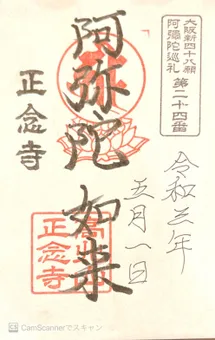 大阪新四十八願
阿彌陀巡礼 第二十四番
阿弥陀如来
令和三年
五月一日
正念寺
正念寺
CamScannerでスキャン